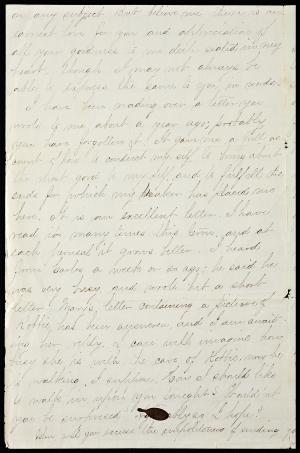 on any subject. But believe me there is an
earnest love for you and appreciation of
all your goodness to me deep seated in my
heart. Though I may not always be
able to express the same to you in words.
I have been reading over a letter you
wrote to me about a year ago; probably
you have forgotten it. It gave me a full ac
count of how to conduct myself to bring about
the most good to myself, and to fulfill the
ends for which my Maker has placed me
here. It is an excellent letter. I have
read it many times this term, and at
each perusal it grows better. I heard
from a week or so ago; he said he
was very busy, and wrote but a short
letter. letter containing a picture of
Robbie has been answered, and I am await-
ing her reply. I can well imagine how
busy she is with the care of Robbie, now he
is walking, I suppose. How I should like
to walk in upon you tonight! Would'nt
you be surprised I hope?
you excuse the of sending